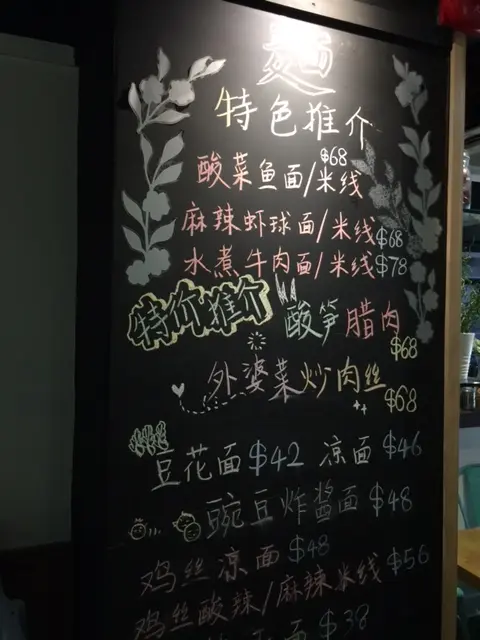 麵
特色推介
$68
酸菜鱼面/米线
麻辣虾球面/米线$68
水煮牛肉面/米线$78
特价推介 酸笋腊肉
$68
外婆菜炒肉丝
$68
豆花面$42 凉面$46
豌豆炸酱面$48
鸡丝凉面$48
鸡丝酸辣/麻辣米线$56
面$38